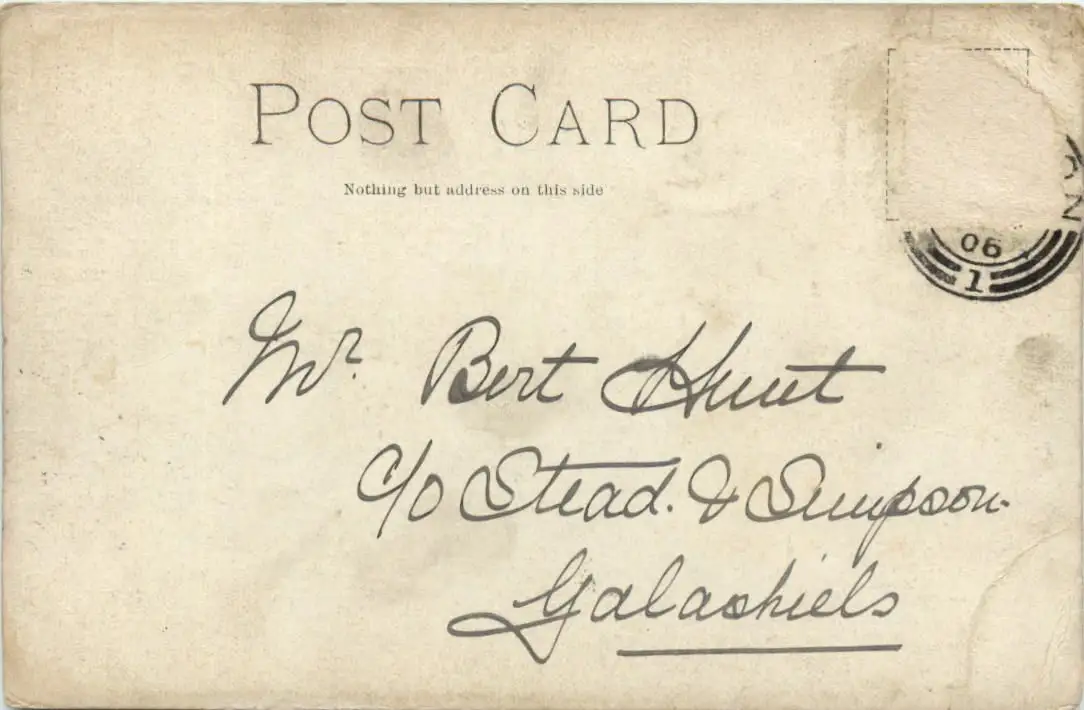 POST CARD
Nothing but address on this side
AN
06
1
Mr. Bert Hunt
c/o Stead. & Simpson.
Galashiels